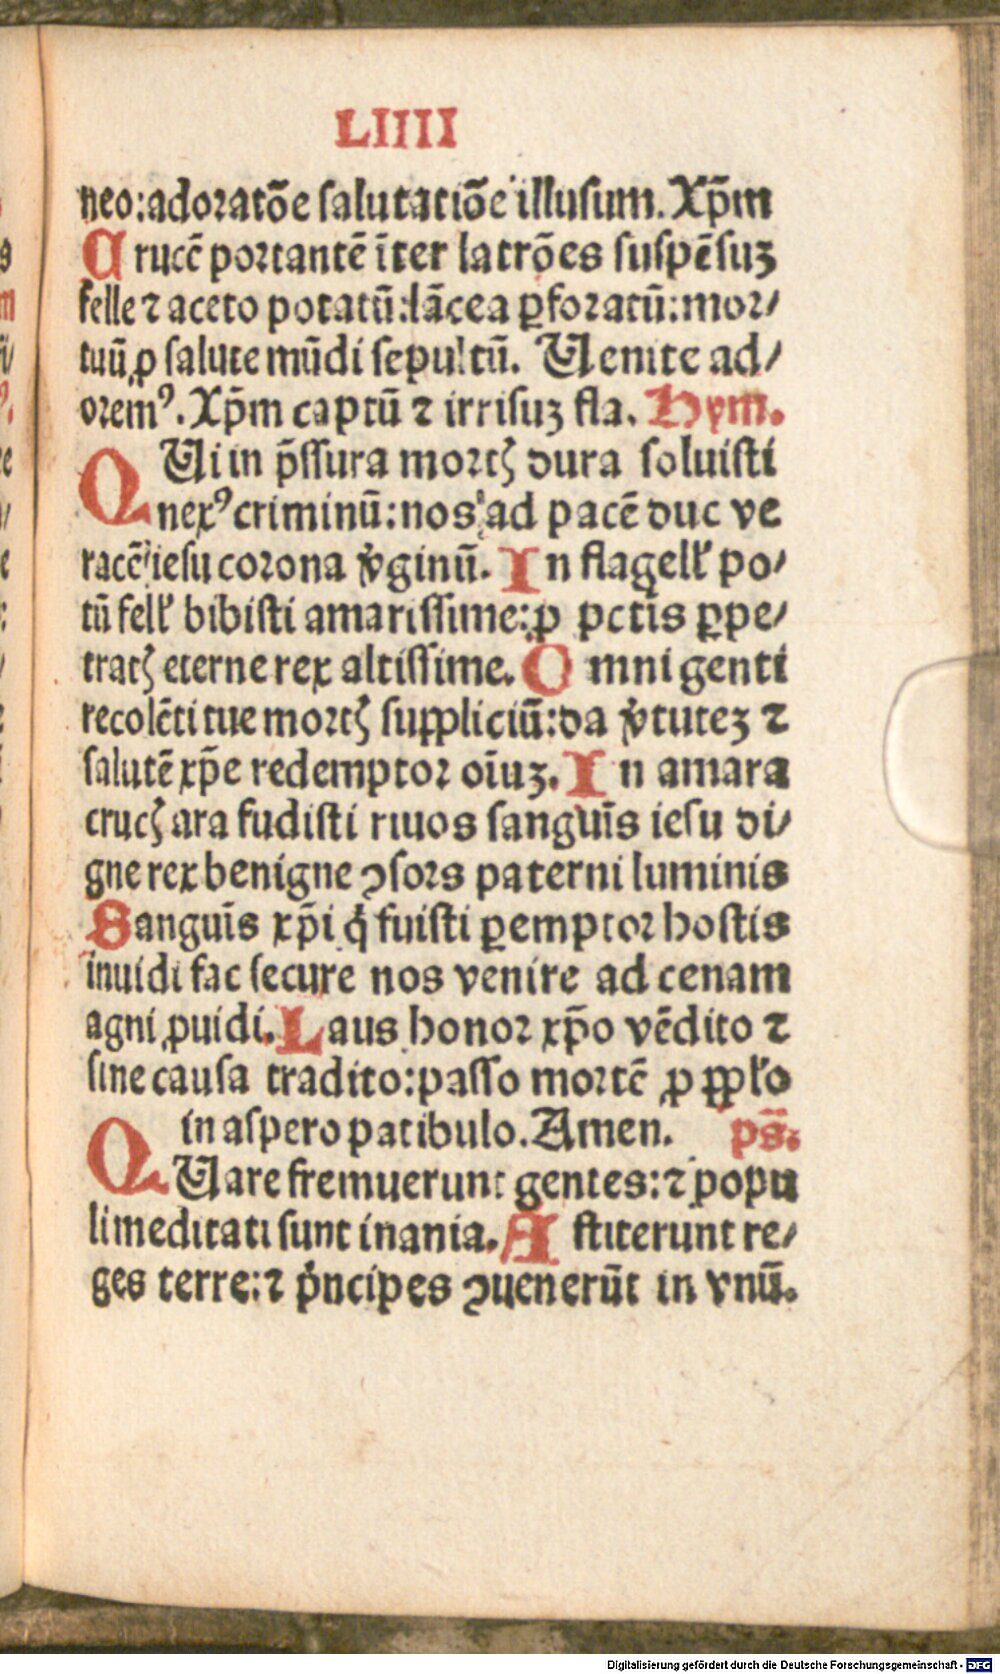 LIIII
neo:adoratõe salutatiõe illusum. Xp̃m
Crucẽ portantẽ ĩter latrões suspẽsuꝫ
felle ⁊ aceto potatũ:lãcea ꝑforatũ:mor/
tuũ ꝓ salute mũdi sepultũ. Uenite ad/
oremꝰ. Xp̃m captũ ⁊ irrisuꝫ fla. Hym.
QUi in p̃ssura mortꝭ dura soluisti
nexꝰ criminũ:nos ad pacẽ duc ve
racẽ iesu corona v̓ginũ. In flagell̓ po/
tũ fell̓ bibisti amarissime:ꝓ pctĩs ꝑpe/
tratꝭ eterne rex altissime. Omni genti
recolẽti tue mortꝭ suppliciũ:da v̓tuteꝫ ⁊
salutẽ xp̃e redemptor oĩuꝫ. In amara
crucꝭ ara fudisti riuos sanguĩs iesu di/
gne rex benigne ↄsors paterni luminis
Sanguĩs xp̃i q̓ fuisti ꝑemptor hostis
inuidi fac secure nos venire ad cenam
agni ꝓuidi. Laus honor xp̃o vẽdito ⁊
sine causa tradito:passo mortẽ ꝓ pp̄lo
in aspero patibulo. Amen. ps̃.
QUare fremuerunt gentes:⁊ popu
li meditati sunt inania. Astiterunt re/
ges terre:⁊ p̓ncipes ↄuenerũt in vnũ.
Digitalisierung gefördert durch die Deutsche Forschungsgemeinschaft - DFG